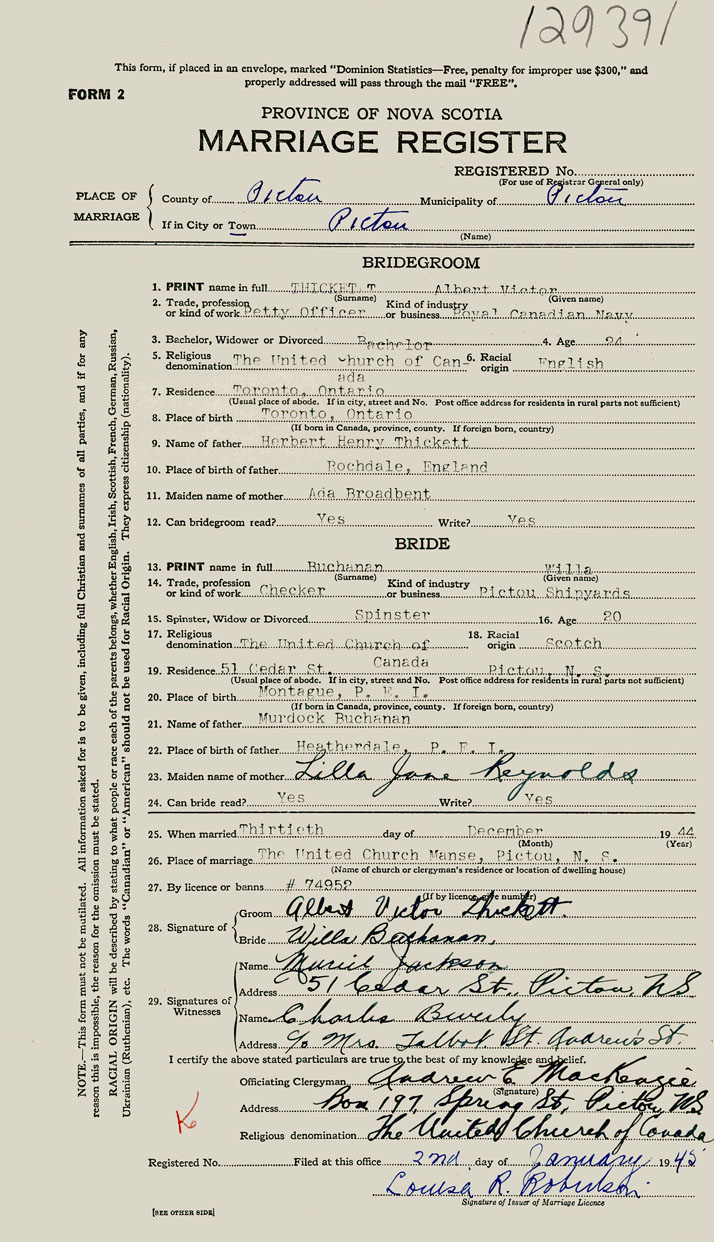 129391
This form, if placed in an envelope, marked "Dominion Statistics—Free, penalty for improper use $300," and
properly addressed will pass through the mail "FREE".
FORM 2
PROVINCE OF NOVA SCOTIA
MARRIAGE REGISTER
REGISTERED No.
(For use of Registrar General only)
PLACE OF MARRIAGE
County of Pictou Municipality of Pictou
If in City or Town Pictou
(Name)
BRIDEGROOM
1. PRINT name in full THICKETT Albert Victor
(Surname) (Given name)
2. Trade, profession or kind of work Petty Officer Kind of industry or business Royal Canadian Navy
3. Bachelor, Widower or Divorced Bachelor 4. Age 24
5. Religious denomination The United Church of Can- 6. Racial origin English
ada
7. Residence Toronto, Ontario
(Usual place of abode. If in city, street and No. Post office address for residents in rural parts not sufficient)
8. Place of birth Toronto, Ontario
(If born in Canada, province, county. If foreign born, country)
9. Name of father Herbert Henry Thickett
10. Place of birth of father Rochdale, England
11. Maiden name of mother Ada Broadbent
12. Can bridegroom read? Yes Write? Yes
BRIDE
13. PRINT name in full Buchanan Willa
(Surname) (Given name)
14. Trade, profession or kind of work Checker Kind of industry or business Pictou Shipyards
15. Spinster, Widow or Divorced Spinster 16. Age 20
17. Religious denomination The United Church of 18. Racial origin Scotch
Canada
19. Residence 51 Cedar St. Pictou, N. S.
(Usual place of abode. If in city, street and No. Post office address for residents in rural parts not sufficient)
20. Place of birth Montague, P. E. I.
(If born in Canada, province, county. If foreign born, country)
21. Name of father Murdock Buchanan
22. Place of birth of father Heatherdale, P. E. I.
23. Maiden name of mother Lilla Jane Reynolds
24. Can bride read? Yes Write? Yes
25. When married Thirtieth day of December 19 44
(Month) (Year)
26. Place of marriage The United Church Manse, Pictou, N. S.
(Name of church or clergyman's residence or location of dwelling house)
27. By licence or banns # 74952
(If by licence, give number)
28. Signature of
Groom Albert Victor Thickett.
Bride Willa Buchanan.
29. Signatures of Witnesses
Name Muriel Jackson
Address 51 Cedar St., Pictou, NS
Name Charles Beverly
Address % Mrs. Talbot St. Andrew's St.
I certify the above stated particulars are true to the best of my knowledge and belief.
Officiating Clergyman Andrew E MacKenzie
(Signature)
Address Box 197, Spring St, Pictou, NS
Religious denomination The United Church of Canada
Registered No. Filed at this office 2nd day of January 19 45
Louisa R. Robertson
Signature of Issuer of Marriage Licence
[SEE OTHER SIDE]
NOTE.—This form must not be mutilated. All information asked for is to be given, including full Christian and surnames of all parties, and if for any
reason this is impossible, the reason for the omission must be stated.
RACIAL ORIGIN will be described by stating to what people or race each of the parents belongs, whether English, Irish, Scottish, French, German, Russian,
Ukrainian (Ruthenian), etc. The words "Canadian" or "American" should not be used for Racial Origin. They express citizenship (nationality).